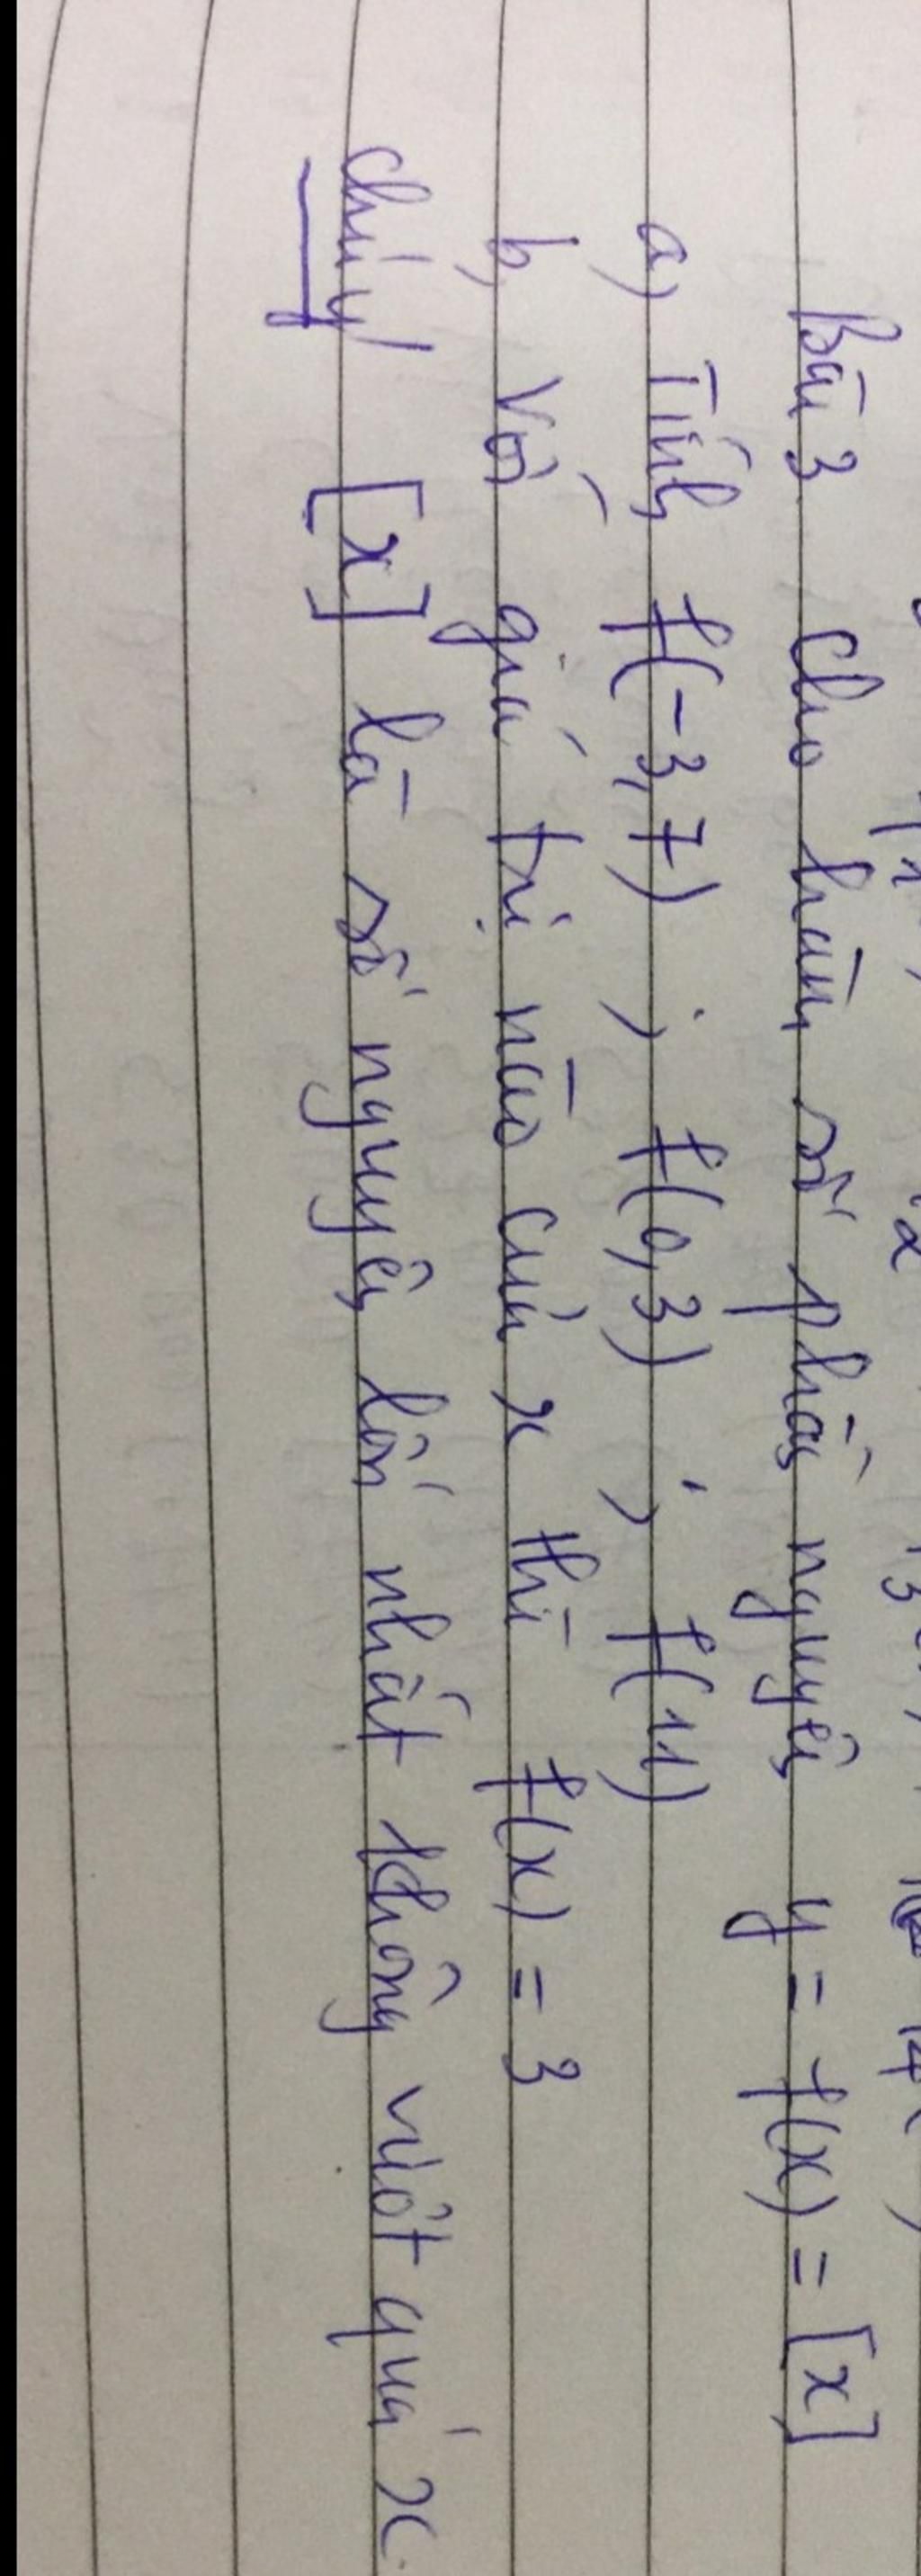 Bài 3 Cho hàm số phần nguyên y = f(x) = [x]
a) Tính f(-3,7) ; f(0,3) ; f(11)
b, Với giá trị nào của x thì f(x) = 3
Chú ý [x] là số nguyên lớn nhất không vượt quá x.